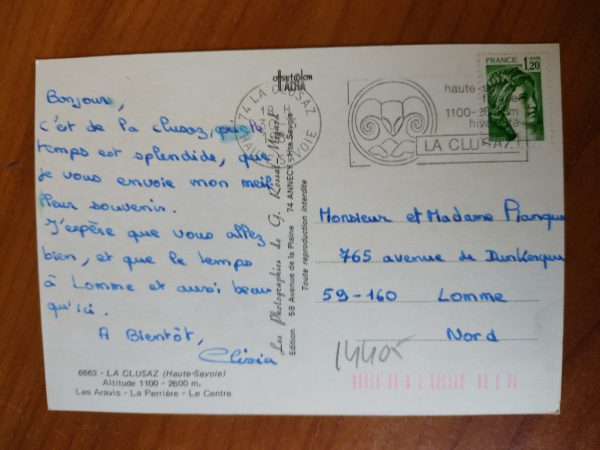 Bonjour,
c'est de la clusaz, que le
temps est splendide, que
je vous envoie mon meil
leur souvenir.
J'espère que vous allez
bien, et que le temps
à Lomme et aussi beau
qu'ici.
A Bientôt,
6663 - LA CLUSAZ (Haute-Savoie)
Altitude 1100 - 2600 m.
Les Aravis - La Perrière - Le Centre
Les Photographies de G. Rossat-Mignon
Edition 58 Avenue de la Plaine 74 ANNECY Hte Savoie
Toute reproduction interdite
74 LA CLUSAZ
HAUTE SAVOIE
haute-s
1100-26
hiver
LA CLUSAZ
FRANCE
1,20
Monsieur et Madame
765 avenue de Dunkerque
59-160 Lomme
Nord